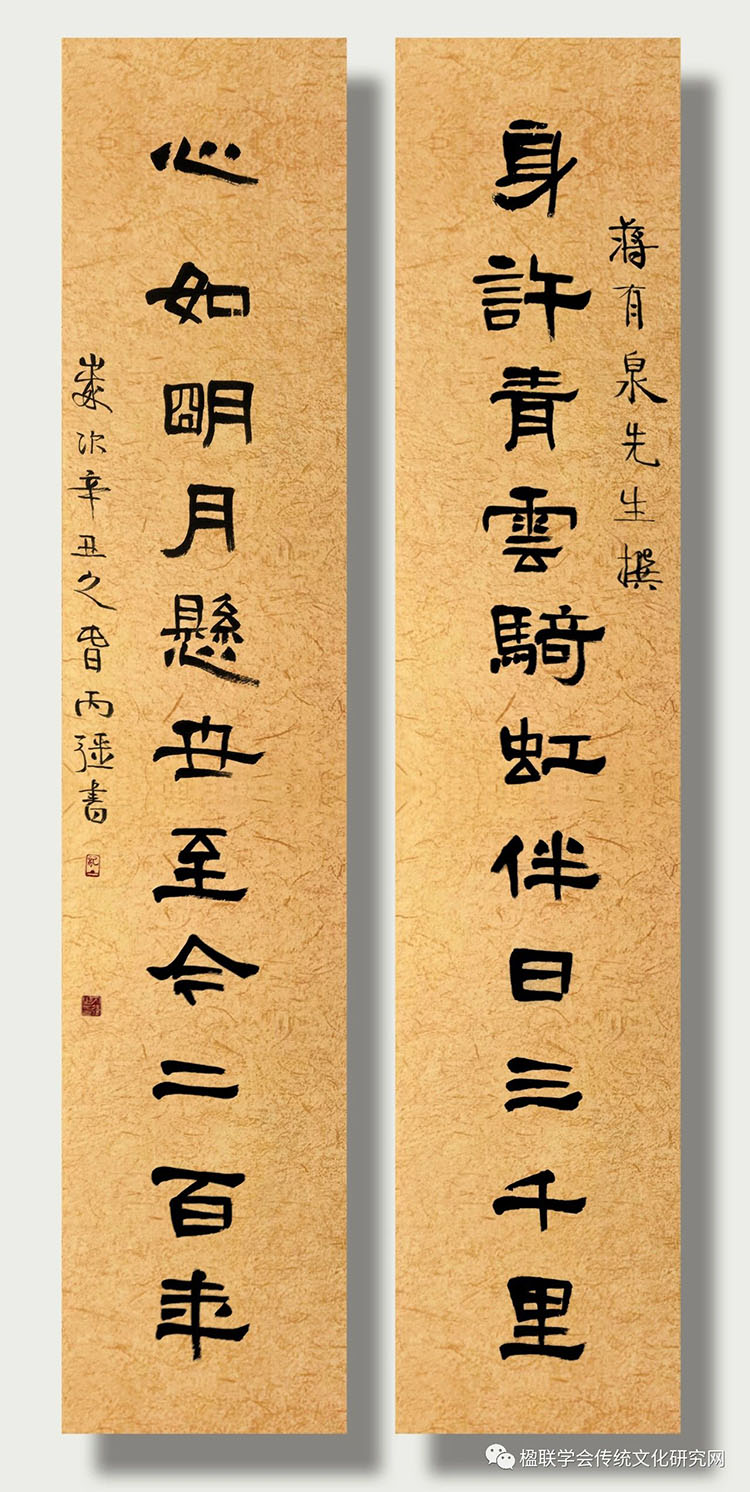 蔣有泉先生撰
身許青雲騎虹伴日三千里
心如明月懸世至今二百年
歲次辛丑之春丙強書
楹联学会传统文化研究网